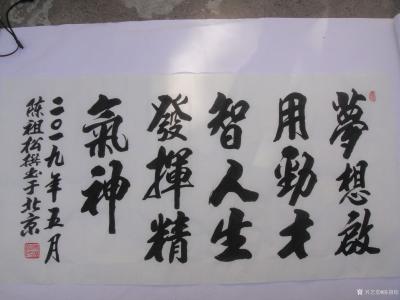 夢想啟
用勁才
智人生
發揮精
氣神
二〇一九年五月
陳祖松撰書于北京